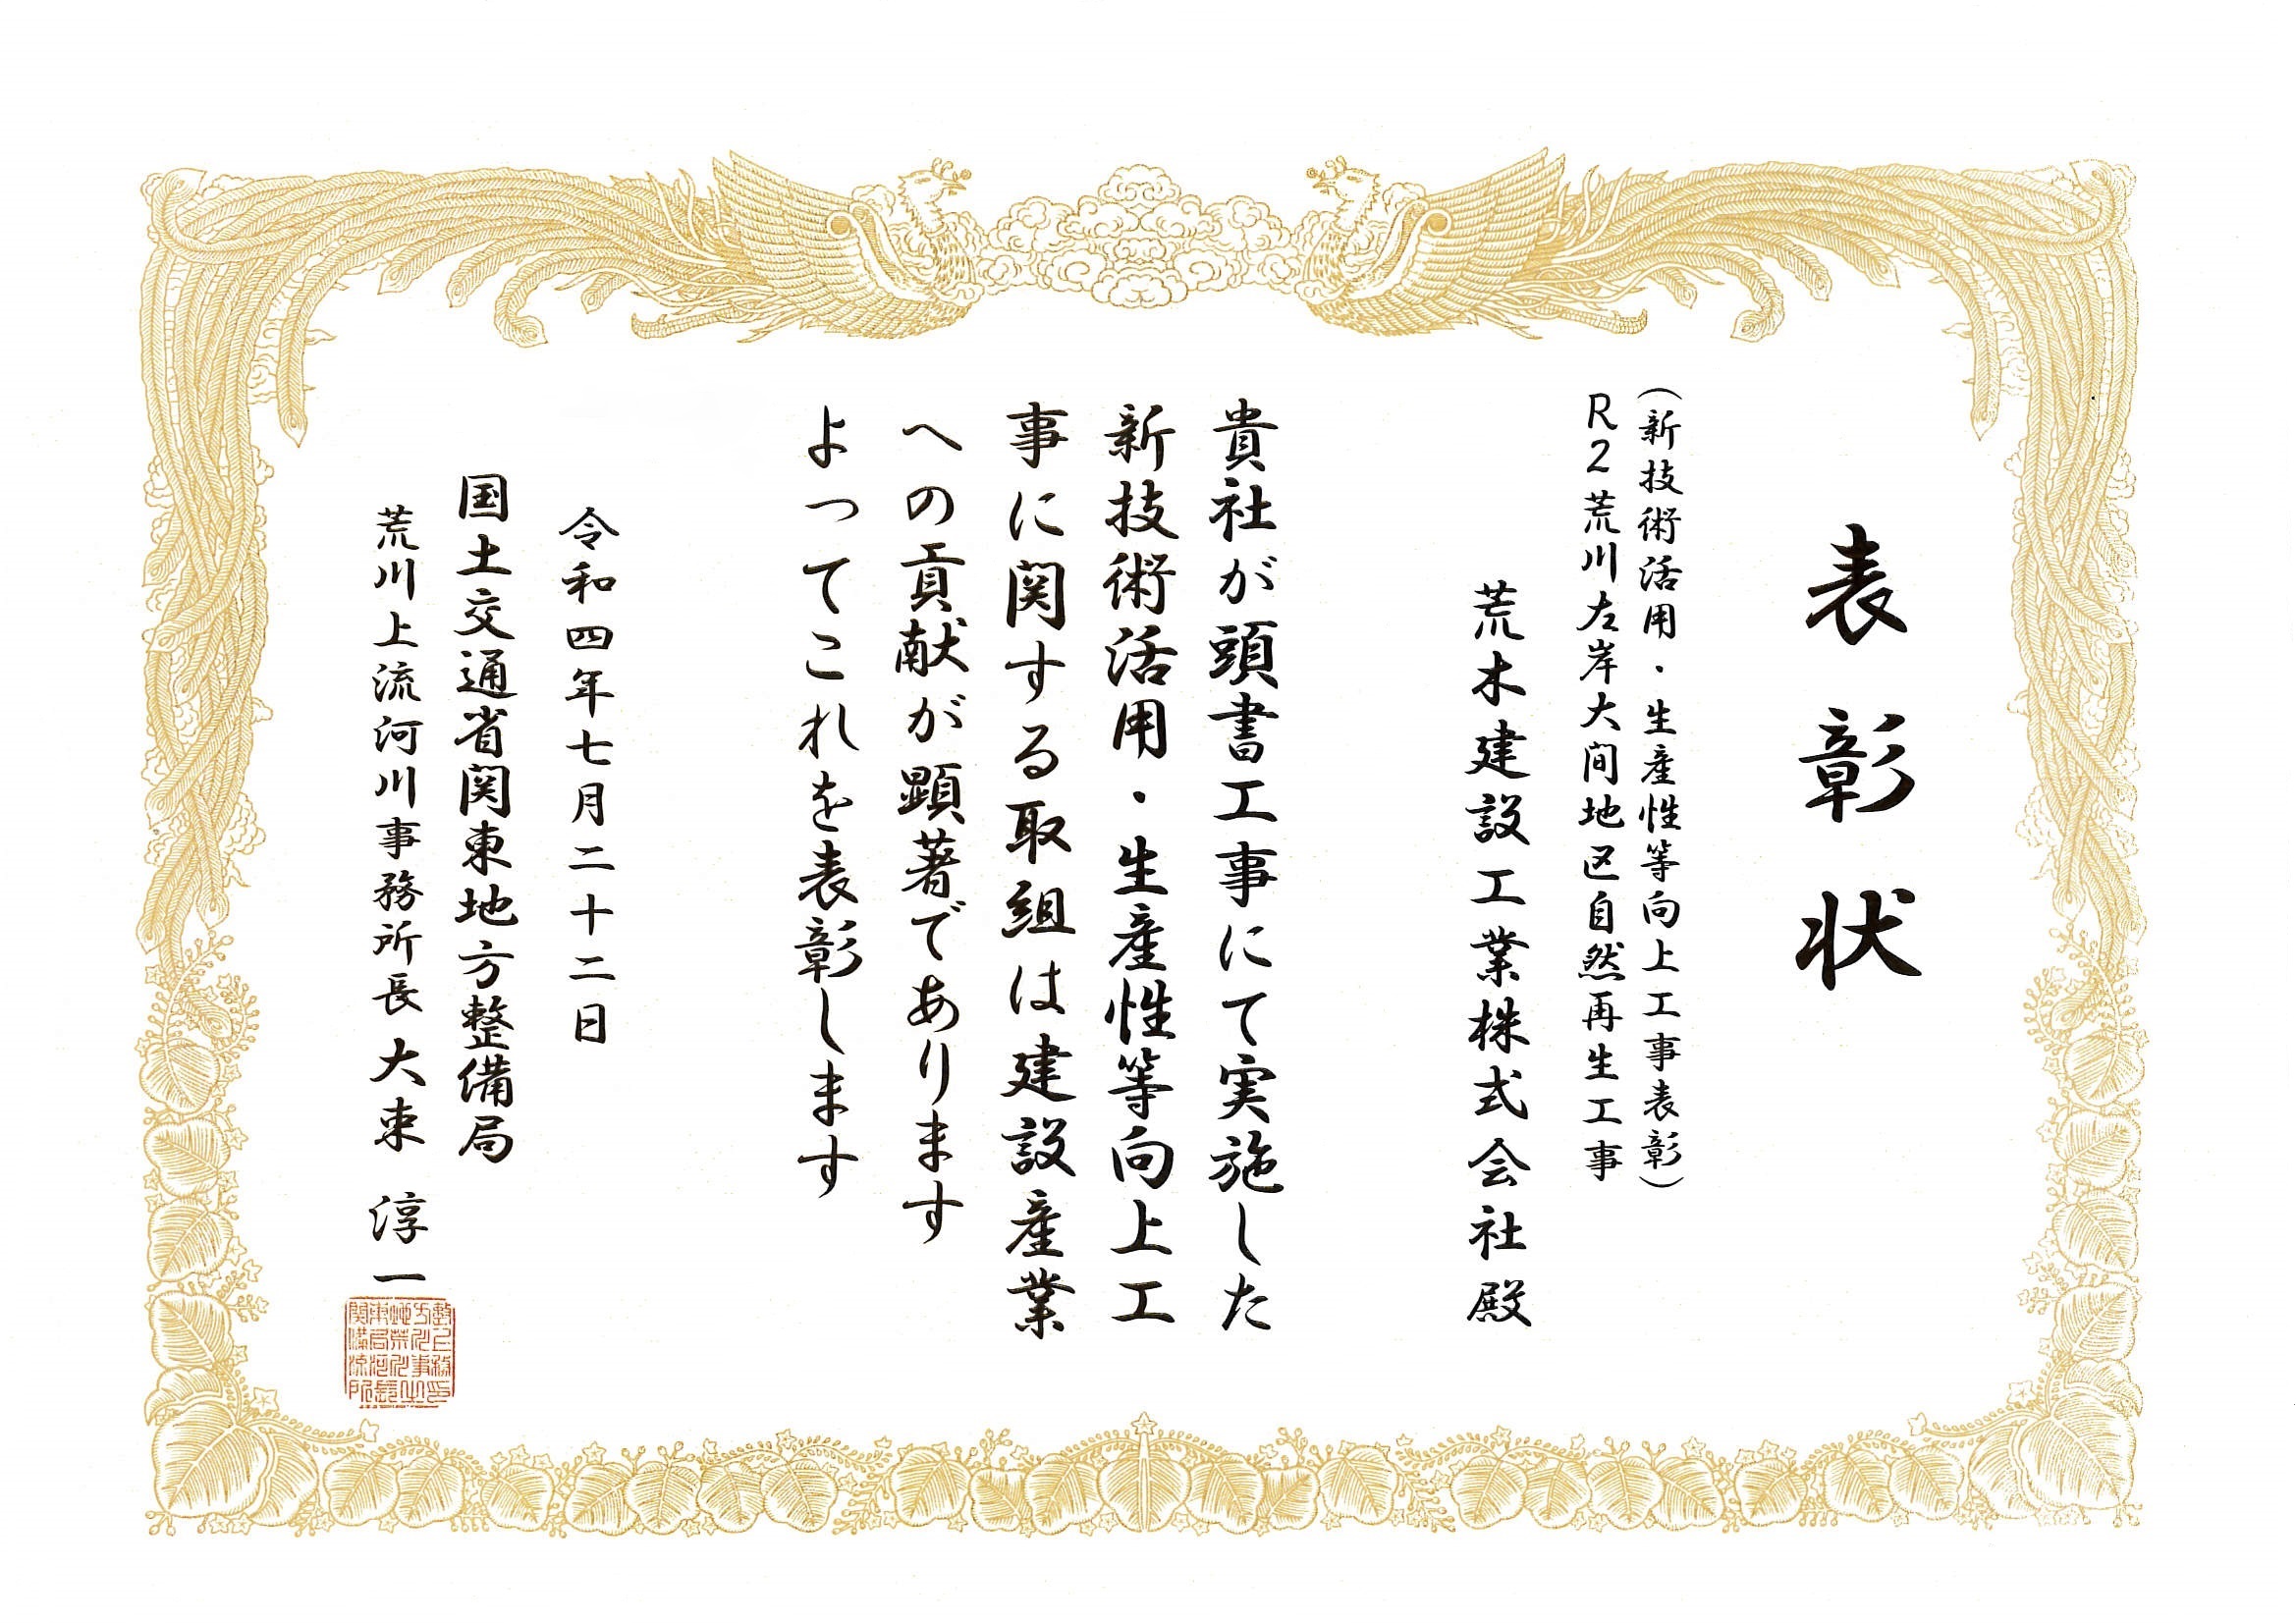 表彰状
(新技術活用・生産性等向上工事表彰)
R2荒川左岸大間地区自然再生工事
荒木建設工業株式会社殿
貴社が頭書工事にて実施した
新技術活用・生産性等向上工
事に関する取組は建設産業
への貢献が顕著であります
よってこれを表彰します
令和四年七月二十二日
国土交通省関東地方整備局
荒川上流河川事務所長 大束 淳一